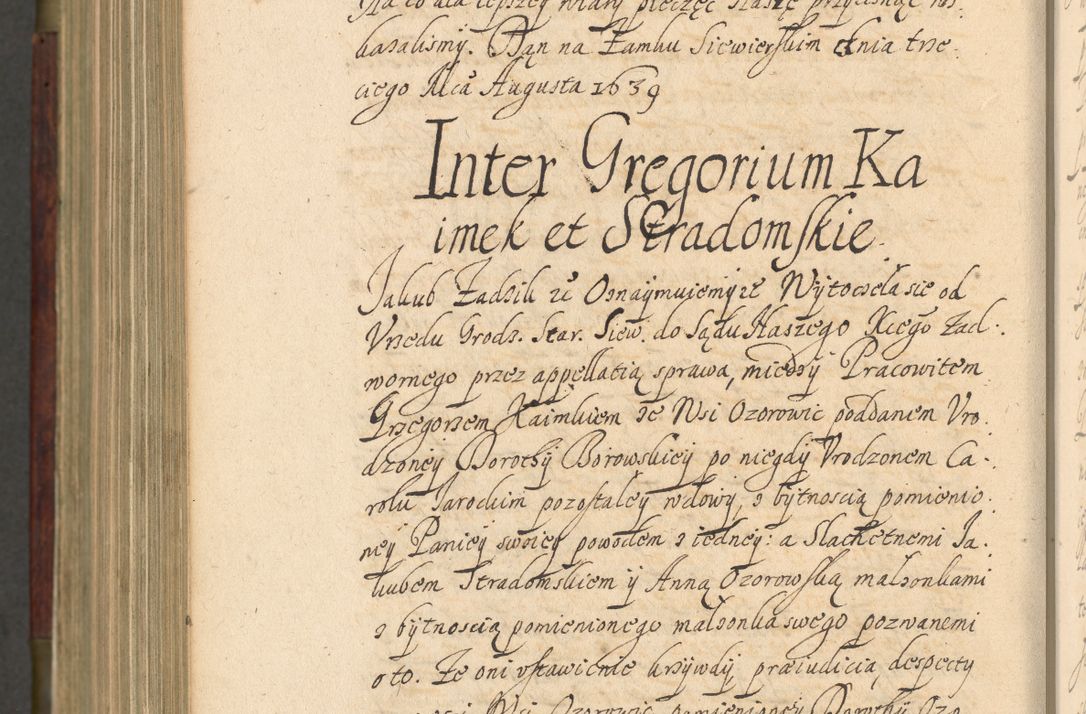 Na co dla lepszey wiary pieczęć Naszę przycisnąć ros:
kazalismy. Dan na Zamku Siewierskim dnia trze
ciego Mca Augusta 1639
Inter Gregorium Ka
imek et Stradomskie.
Jakub Zadzik etc Oznaymuiemy iż Wytoczeła sie od
Vrzedu Grodz. Star. Siew. do Sądu Naszego Xcego Zad:
wornego przez appellatią sprawa, miedzy Pracowitem
Grzegorzem Kaimkiem ze Wsi Ozorowic poddanem Vro:
dzoney Dorothy Borowskiey po niegdy Vrodzonem Ca:
rolu Jarockim pozostałey wdowy, z bytnoscią pomienio:
ney Paniey swoiey powodem z iedney: a Slachetnemi Ja:
kubem Stradomskiem y Anną Ozorowską malzonkami
z bytnoscią pomienionego malzonka swego pozwanemi
oto. Ze oni vstawicznie krzywdy, præiudicia, despecty
Wsi Ozorowic pomienioney Dorothy Ozo